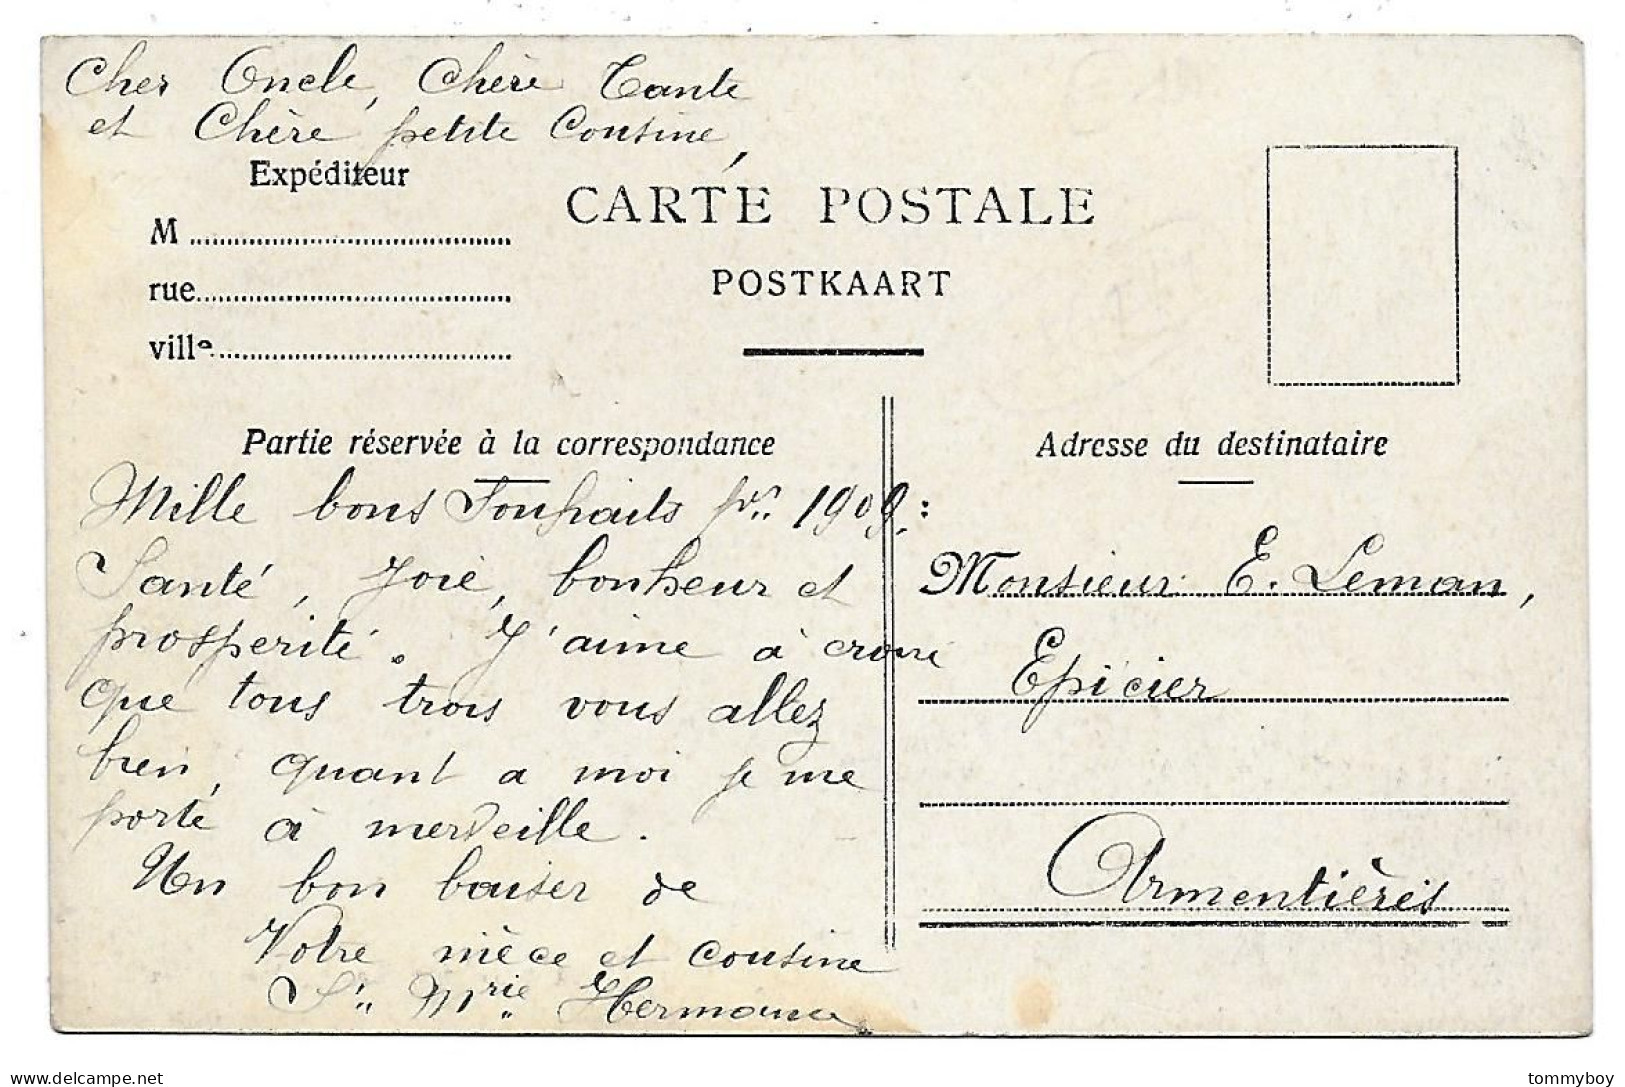 Cher Oncle, Chère Tante
et Chère petite Cousine,
Expéditeur
M
rue
ville
CARTE POSTALE
POSTKAART
Partie réservée à la correspondance
Mille bons Souhaits pr. 1909:
Santé, Joie, bonheur et
prospérité. J'aime à croire
que tous trois vous allez
bien, quant a moi je me
porte à merveille.
Un bon baiser de
Votre nièce et cousine
Sr. Mrie Hermance
Adresse du destinataire
Monsieur E. Leman,
Epicier
Armentières
delcampe.net
tommyboy